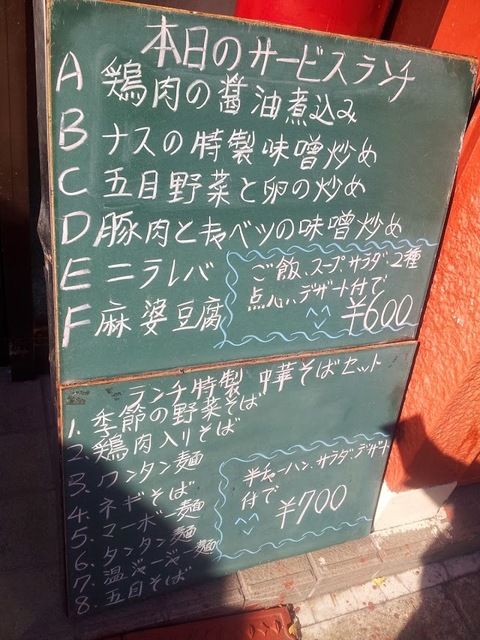 本日のサービスランチ
A 鶏肉の醤油煮込み
B ナスの特製味噌炒め
C 五目野菜と卵の炒め
D 豚肉とキャベツの味噌炒め
E ニラレバ
F 麻婆豆腐
ご飯、スープ、サラダ、2種
点心、デザート付で
¥600
ランチ特製 中華そばセット
1. 季節の野菜そば
2. 鶏肉入りそば
3. ワンタン麺
4. ネギそば
5. マーボー麺
6. タンタン麺
7. 温ジャージャー麺
8. 五目そば
半チャーハン、サラダ、デザート
付で
¥700